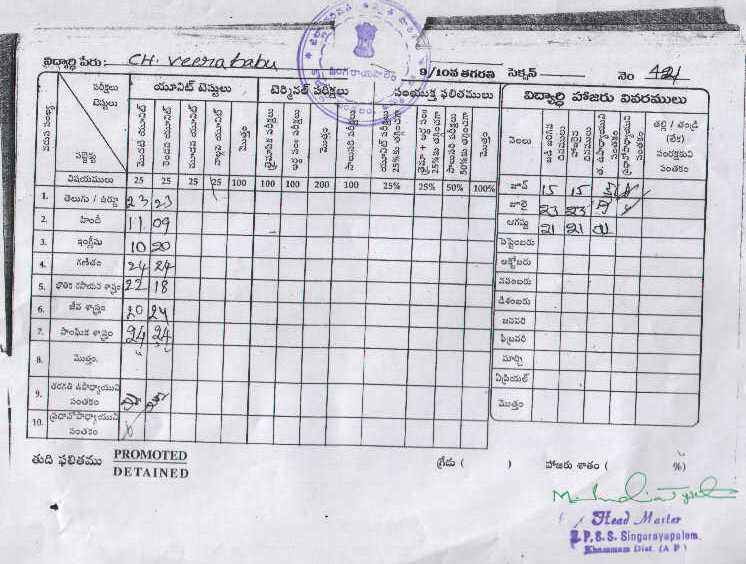 విద్యార్థి పేరు: CH. Veerababu 9/10వ తరగతి సెక్షన్ నెం 421
సింగరాయపాలెం
వరుస సంఖ్య పరీక్షలు టెస్టులు సబ్జెక్టు యూనిట్ టెస్టులు టెర్మినల్ పరీక్షలు సంయుక్త ఫలితములు
మొదటి యూనిట్ రెండవ యూనిట్ మూడవ యూనిట్ నాల్గవ యూనిట్ మొత్తం త్రైమాసిక పరీక్షలు అర్థ సం పరీక్షలు మొత్తం సాలుసరి పరీక్షలు యూనిట్ పరీక్షలు 25%కు తగ్గించగా త్రైమా + అర్థ సం 25%కు తగ్గించగా సాలుసరి పరీక్షలు 50%కు తగ్గించగా మొత్తం
విషయములు 25 25 25 25 100 100 100 200 100 25% 25% 50% 100%
1. తెలుగు / ఉర్దూ 23 23
2. హిందీ 11 09
3. ఇంగ్లీషు 10 20
4. గణితం 24 24
5. భౌతిక రసాయన శాస్త్రం 22 18
6. జీవ శాస్త్రం 20 24
7. సాంఘిక శాస్త్రం 24 24
8. మొత్తం.
9. తరగతి ఉపాధ్యాయుని సంతకం
10. ప్రధానోపాధ్యాయుని సంతకం
విద్యార్థి హాజరు వివరములు
నెలలు బడి జరిగిన దినములు హాజరైన దినములు త. ఉపాధ్యాయుని సంతకం ప్రధానోపాధ్యాయుని సంతకం తల్లి / తండ్రి (లేక) సంరక్షకుని సంతకం
జూన్ 15 15
జూలై 23 23
ఆగష్టు 21 21
సెప్టెంబరు
అక్టోబరు
నవంబరు
డిశంబరు
జనవరి
ఫిబ్రవరి
మార్చి
ఏప్రియల్
మొత్తం
తుది ఫలితము PROMOTED
DETAINED
గ్రేడు ( ) హాజరు శాతం ( %)
Head Master
Z.P.S.S. Singarayapalem.
Khammam Dist. (A P)